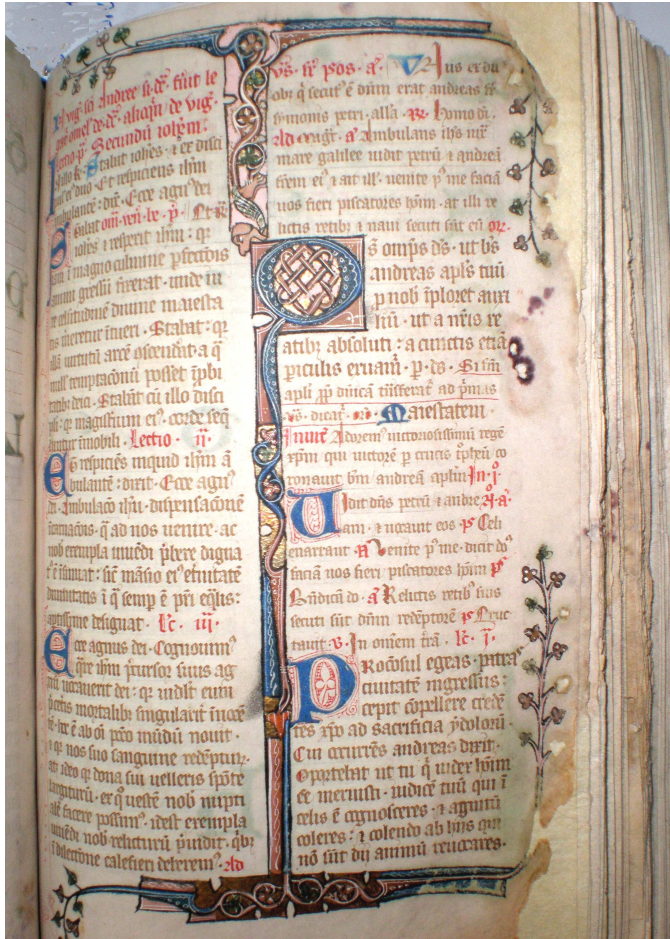 In vig. sci Andree si. dñ. fuit le
gat omel. de dñ. aliqñ de vig.
Lectio. pª. Secundũ ioħem.
Stabat iohēs. ⁊ ex disci
pulis ei᷒ duo. Et respiciens ihm
ambulantē: dix̄. Ecce agn᷒ dei
Stabat
iohēs ⁊ respexit ihm: qꝛ
in magno culmine perfectiõis
animi gressũ fixerat. unde iu
re celsitudinē diuine maiesta
tis meretur intueri. Stabat: qꝛ
illã uirtutũ arcē ascendat a q̃
null᷒ temptacionũ posset ĩpbi
tatib᷒ deici. Stabãt cũ illo disci
puli: qꝛ magisteriũ ei᷒. corde seq̃
bantur imobili. Lectio. ij.
Et respiciẽs inquid ihm ã
bulantẽ: dixit. Ecce agn᷒
dei. Ambulacõ ihu. dispensacionẽ
incarnacõis. q̃ ad nos uenire. ac
nob exempla uiuẽdi p̃bere digna
t᷒ ẽ isinuat: sic mãsio ei᷒ et̃nitatẽ
diuinitatis ĩ q̃ semp̃ ẽ pr̃i eq̃lis:
aptissime designat. lc̃. iij.
Ecce agnus dei. Cognouim᷒
q̃re ihm p̃cursor suus ag
nũ uocauerit dei: qꝛ uidit eum
p̃ cetis mortalib᷒ singularit̃ inocẽ
tẽ. hc̃ ẽ ab oĩ pctõ mũdũ nouit.
⁊ qꝛ nos suo sanguine redẽptur᷒.
ab ideo qꝛ dona sui uelleris spõte
largiturũ. ex q̃ uestẽ nob nupti
alẽ facere possim᷒. idest exempla
uiuẽdi nob relicturũ p̃uidit. q̃b᷒
ĩ dilectione calefieri deberem᷒. ad
vs. sr̃ pos. a. Vn᷒ ex du
ob᷒ q̃ secuti ẽ dñm erat andreas fr̃
symonis petri. alla. R̃. homo di.
ad magt̃. a. Ambulans ihs iux̃
mare galilee uidit petrũ ⁊ andreã
fr̃em ei᷒ ⁊ ait ill᷒. uenite p᷒ me faciã
uos fieri piscatores hoĩm. at illi re
lictis retib᷒ ⁊ naui secuti sũt eũ. or.
Quis omps ds. ut bs
andreas apls tuũ
p nob iploret auxi
liũ. ut a nr̃is re
atib᷒ absoluti: a cunctis etiã
piculis eruam᷒. p. ds. Si fm̃
apli ip̃ dñica ñsferat᷒ ad p̃mas
vs. dicat᷒. an̄. Maiestatem.
Inuit̃. Adorem᷒ uictoriosissimũ regẽ
xpm̃ qui uictorẽ p crucis t̃phũ co
ronauit bm̃ andreã aplm̃. In. j.
Uidit dñs petrũ ⁊ andre. a.
am. ⁊ uocauit eos. ps. Celi
enarrant. a. Venite p᷒ me. dicit dñs
faciã uos fieri piscatores hoĩm. ps.
Bñdicã do. a. Relictis retib᷒ suis
secuti sũt dñm redẽptorẽ. ps. Eruc
tauit. v. In omem tr̃ã. lc̃. j.
Proconsul egeas patras
ciuitatẽ ingressus:
cepit cõpellere credẽ
tes xp̃o ad sacrificia ydolorũ.
Cui occurrẽs andreas dixit.
Oportebat ut tu q̃ iudex hoĩm
ẽẽ meruisti. iudicẽ tuũ qui ĩ
celis ẽ cognosceres: ⁊ agnitũ
coleres: ⁊ colendo ab hijs qui
nõ sũt dij animũ reuocares.